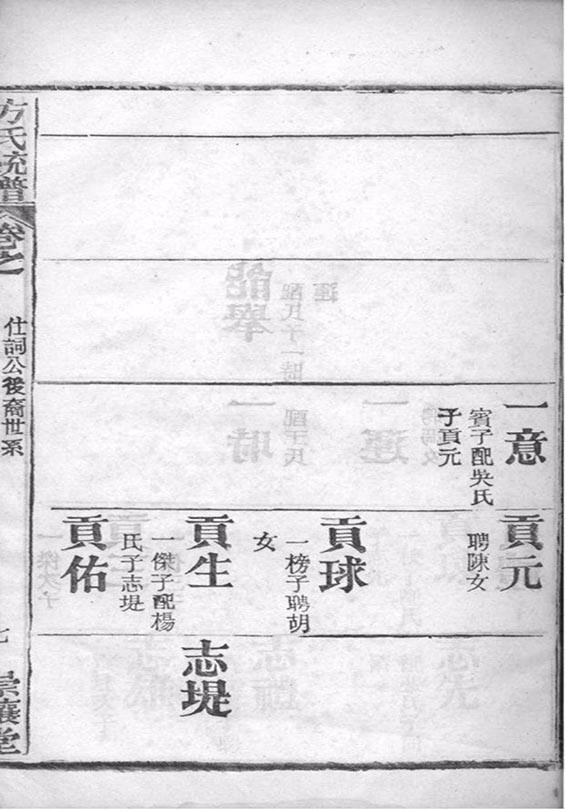 一意
賓子配吳氏
子貢元
貢元
聘陳女
貢球
一榜子聘胡
女
貢生
一傑子配楊
氏子志堤
貢佑
志堤
方氏統譜
卷之
仕詞公後裔世系
七
崇讓堂